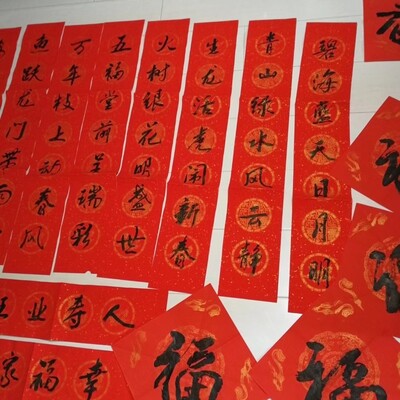 碧海蓝天日月明
青山绿水风云静
生龙活虎闹新春
火树银花明盛世
五福堂前呈瑞彩
万年枝上动春风
鱼跃龙门
业寿人
家福幸
福
福